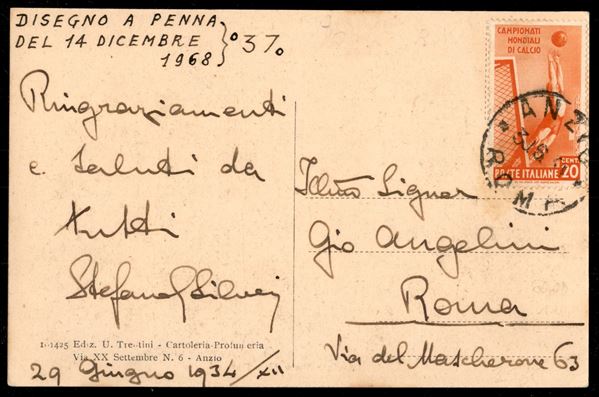 DISEGNO A PENNA
DEL 14 DICEMBRE
1968
37
Ringraziamenti
e saluti da
tutti
29 Giugno 1934/XII
Ediz. U. Trentini - Cartoleria-Profumeria
Via XX Settembre N. 6 - Anzio
CAMPIONATI
MONDIALI
DI CALCIO
POSTE ITALIANE
CENT.
20
ANZIO
ROMA
Illmo Signor
Gio Angelini
Roma
Via del Mascherone 63